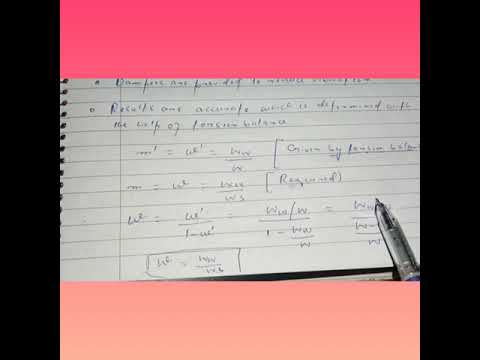 Dampers are provided to reduce
Results are accurate which is determined with
the help of torsion balance
m' = w' = Ww/W [Given by torsion balance
m = w = Ww/Ws [Required)
w = w'/1-w' = (Ww/W)/(1 - Ww/W) = Ww/W-
w = Ww/Ws